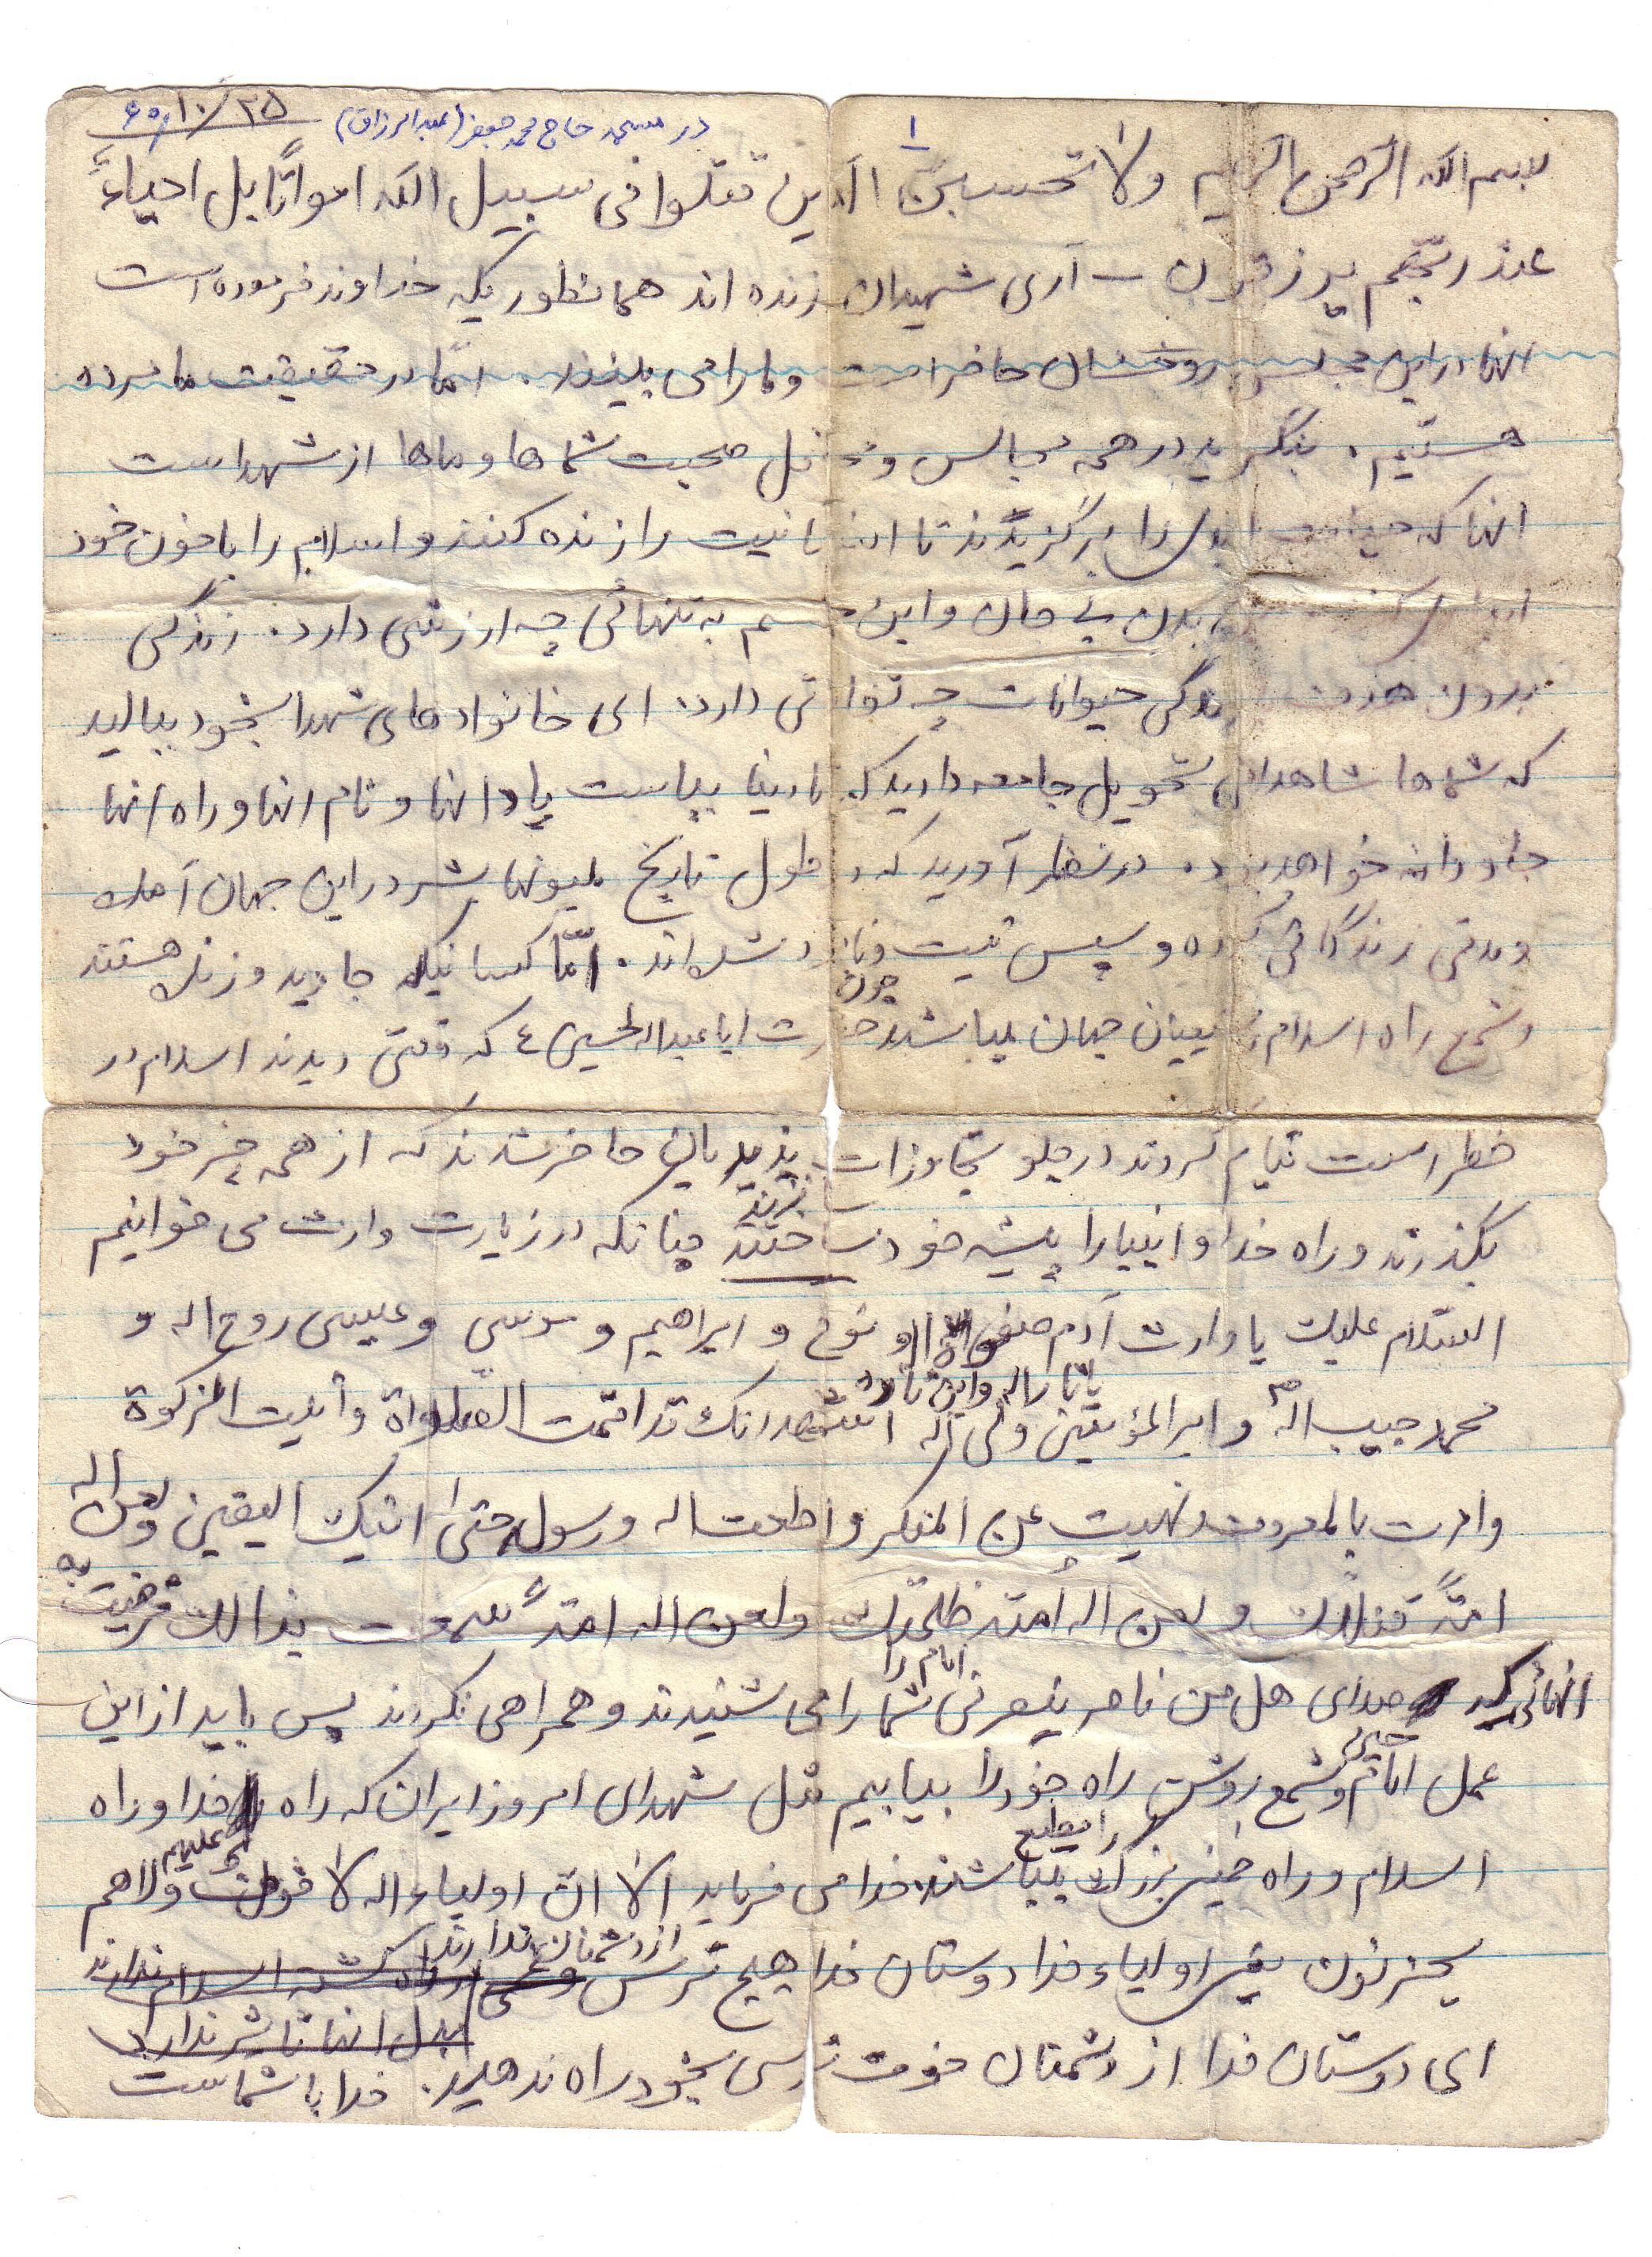 ۶۰/۱۰/۲۵
در مسجد حاج محمد جعفر (عبدالرزاق)
۱
بسم الله الرحمن الرحیم ولا تحسبن الذین قتلوا فی سبیل الله امواتاً بل احیاءً
عند ربهم یرزقون – آری شهیدان زنده اند همانطوریکه خداوند فرموده است
انها در این مجلس روحشان حاضر است و ما را می بینند. امّا در حقیقت ما مرده
هستیم. بنگرید در همه مجالس و محافل صحبت شماها و ماها از شهداست
انها که حیات ابدی را برگزیدند تا انسانیت را زنده کنند و اسلام را با خون خود
بدن بی جان و این جسم به تنهائی چه ارزشی دارد. زندگی
بدون هدف زندگی حیوانات چه تفاوتی دارد. ای خانواده های شهدا بخود ببالید
که شماها شاهدانی تحویل جامعه دادید که تا دنیا بپاست یاد انها و نام انها و راه انها
جاودانه خواهد بود. در نظر آورید که در طول تاریخ ملیونها بشر در این جهان آمده
و مدتی زندگانی کرده و سپس نیست و نابود شده اند. امّا کسانیکه جاوید و زنده هستند
و شمع راه اسلام جهان میباشند چون حضرت اباعبداله الحسین ع که وقتی دیدند اسلام در
خطر است قیام کردند در جلو تجاوزات یزیدیان حاضر شدند که از همه چیز خود
بگذرند و راه خدا و انبیا را پیشه خود ساختند چنانکه در زیارت وارث می خوانیم
السّلام علیک یا وارث آدم صفوة اله و نوح و ابراهیم و موسی و عیسی روح اله و
محمد حبیب اله و امیر المؤمنین ولی اله یا ثار اله و ابن ثاره اشهد انک قد اقمت الصلواة و آتیت الزکوة
و امرت بالمعروف و نهیت عن المنکر و اطعت اله و رسوله حتی اتیک الیقین و لعن اله
امةً قتلتک و لعن اله امتة ظلمتک و لعن اله امتة سمعت بذالک فرضیت به
انهائی که صدای هل من ناصر ینصرنی امام را می شنیدند و همراهی نکردند پس باید از این
عمل امام حسین و شمع روشن راه خود را بیابیم مثل شهدای امروز ایران که راه خدا و راه
اسلام و راه خمینی بزرگ را مطیع میباشند خدا می فرماید الا ان اولیاء اله لا خوف علیهم ولا هم
یحزنون یعنی اولیاء خدا دوستان خدا هیچ ترس از دشمنان ندارند
بدل انها تاثیر ندارد
ای دوستان خدا از دشمنان خوف ترسی بخود راه ندهید. خدا با شماست